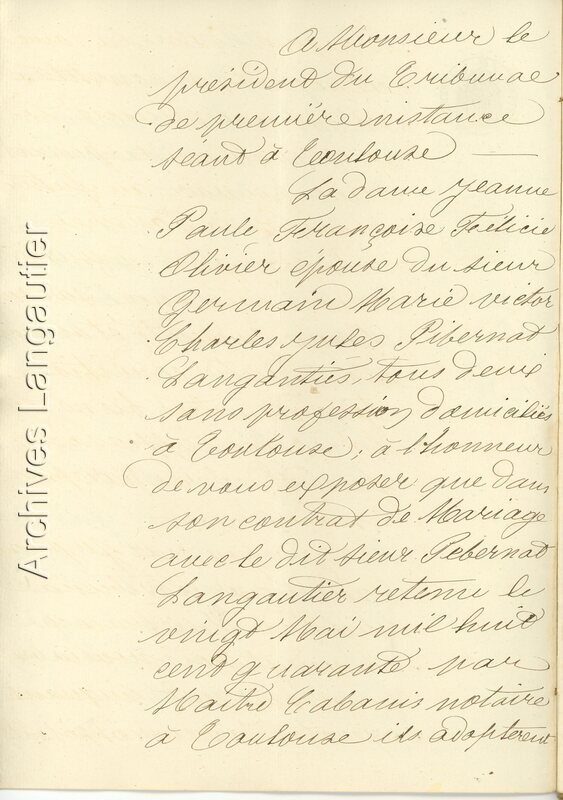 A Monsieur le
président du Tribunae
de première instance
séant à Toulouse —
La dame Jeanne
Paule Françoise Félicie
Olivier epouse du sieur
Germain Marie Victor
Charles Jules Pibernat
Langautiès, tous deux
sans profession domiciliés
à Toulouse ; à l'honneur
de vous exposer que dans
son contrat de Mariage
avec le dit sieur Pebernat
Langautier retenu le
vingt Mai mil huit
cent quarante par
Maitre Cabanis notaire
à Toulouse ils adopterent
Archives Langautier